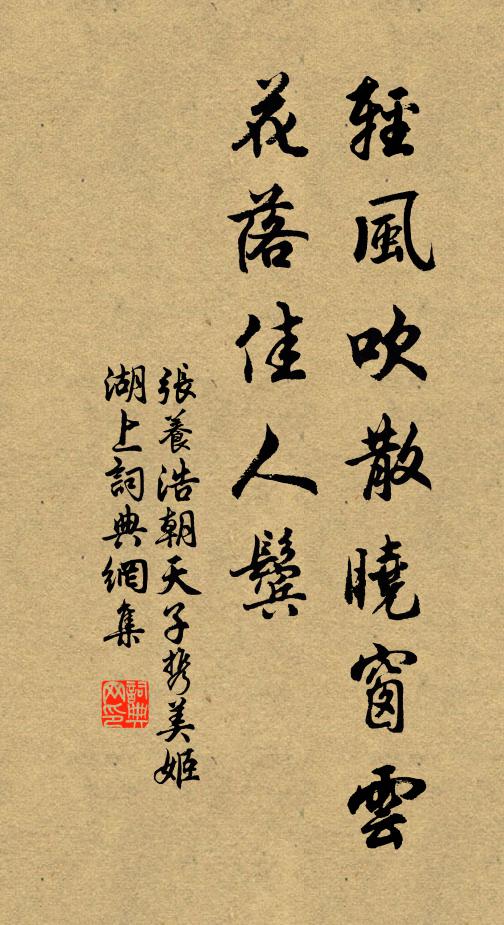 輕風吹散曉窗雲
花落佳人鬢
張養浩朝天子携美姬
湖上詞典網集
詞典
网印